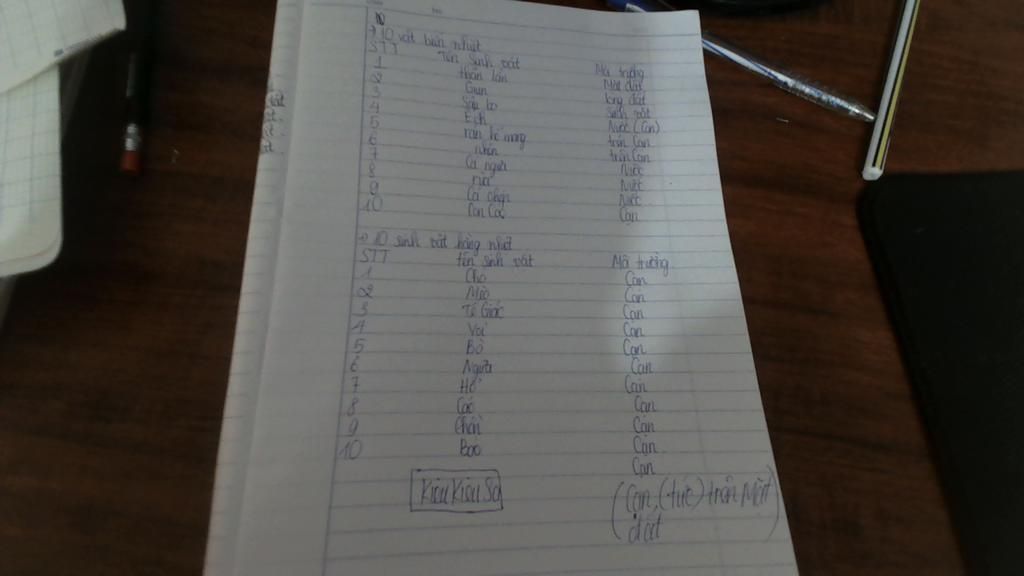 10 vật biến nhiệt
STT Tên sinh vật Môi trường
1 thằn lằn Mặt đất
2 Giun lòng đất
3 Sâu bọ Sinh vật
4 Ếch Nước (Cạn)
5 rắn hổ mang trên Cạn
6 Nhện trên Cạn
7 Cá ngựa Nước
8 Nước
9 Cá chép Nước
10 Con Cóc Cạn
10 sinh vật hằng nhiệt
STT tên sinh vật Môi trường
1 Chó Cạn
2 Mèo Cạn
3 Tê Giác Cạn
4 Voi Cạn
5 Bò Cạn
6 Người Cạn
7 Hổ Cạn
8 Cáo Cạn
9 Cạn
10 Báo Cạn
Cạn
Kiều Kiều
(Cạn, (tức) trên Mặt
đất)